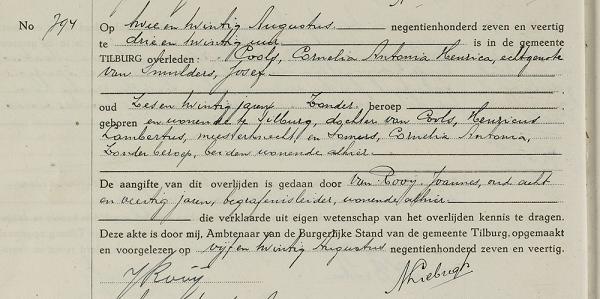 No 794
Op twee en twintig Augustus negentienhonderd zeven en veertig
te drie en twintig uur is in de gemeente
TILBURG overleden: Cools, Cornelia Antonia Henrica, echtgenote
van Smulders, Josef
oud Zes en twintig jaren Zonder beroep
geboren en wonende te Tilburg, dochter van Cools, Henricus
Lambertus, meesterknecht en Somers, Cornelia Antonia,
Zonder beroep, beiden wonende alhier
De aangifte van dit overlijden is gedaan door Van Rooy, Joannes, oud acht
en veertig jaren, begrafenisleider, wonende alhier
die verklaarde uit eigen wetenschap van het overlijden kennis te dragen.
Deze akte is door mij, Ambtenaar van de Burgerlijke Stand van de gemeente Tilburg, opgemaakt
en voorgelezen op vijf en twintig Augustus negentienhonderd zeven en veertig.
J Rooij